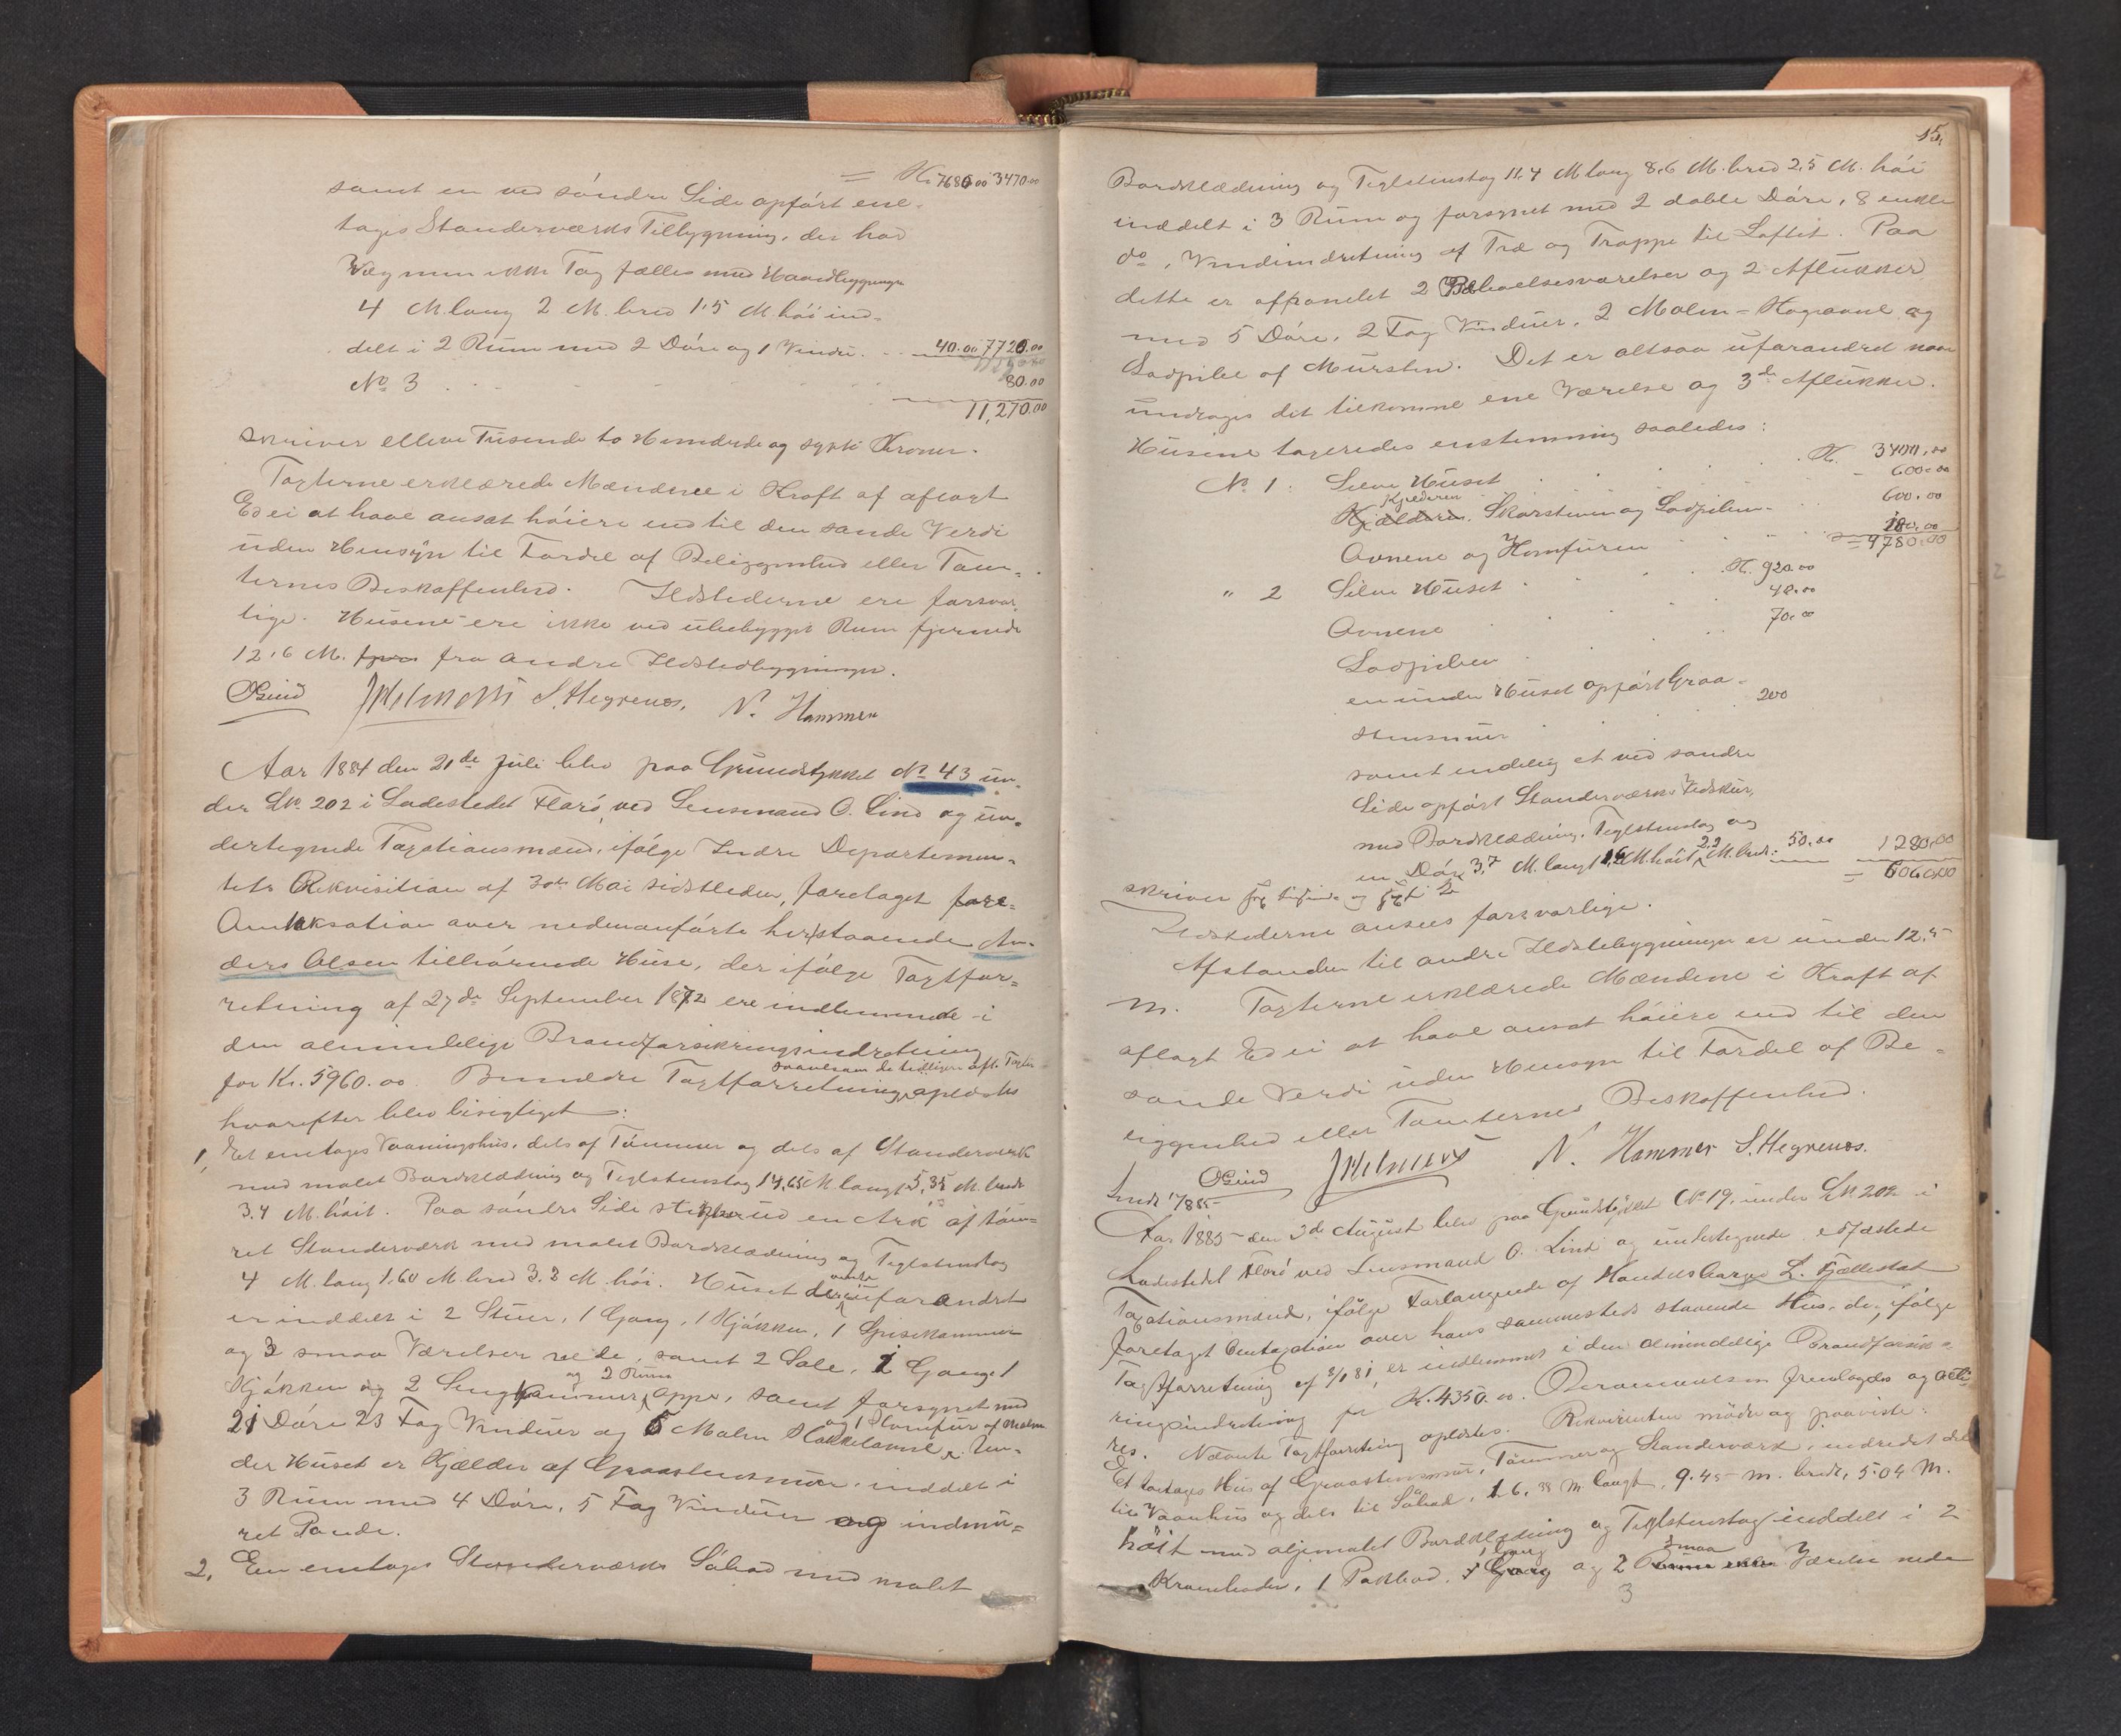 = Kr. 7680.00 3470.00
samt en ved söndre Side opfört ene-
tages Standerværks Tilbygning, der har
Væg men ikke Tag fælles med Hovedbygningen
4 M. lang 2 M. bred 1.5 M. höi ind-
delt i 2 Rum med 2 Döre og 1 Vindu. 40.00 7720.00
No 3 80.00
11,270.00
skriver elleve Tusende to Hundrede og sytti Kroner.
Taxterne erklærede Mændene i Kraft af aflagt
Ed ei at have ansat höiere end til den sande Verdi
uden Hensyn til Fordel af Beliggenhed eller Tom-
ternes Beskaffenhed. Ildstederne ere forsvar-
lige. Husene ere ikke ved ubebygget Rum fjernede
12.6 M. fra andre Ildstedbygninger.
O Lind S. Hegrenæs. N. Hammer
Aar 1884 den 21de Juli blev paa Grundstykket No 43 un-
der Lk 202 i Ladestedet Florö, ved Lensmand O. Lind og un-
dertegnede Taxationsmænd, ifölge Indre Departemen-
tets Rekvisition af 30te Mai sidstleden, foretaget
Omtaksation over nedenanförte herstaaende An-
ders Olsen tilhörende Huse, der ifölge Taxtfor-
retning af 27de September 1872 ere indlemmede i
den almindelige Brandforsikringsindretning
for Kr. 5960.00. Bemeldte Taxtforretning saavelsom de tidligere afh. Taxter oplæstes
hvorefter blev besigtiget:
1, Et enetages Vaaningshus, dels af Tömmer og dels af Standerværk
med malet Bordklædning og Teglstenstag 14,65 M. langt, 5,35 M. bredt
3.4 M. höit. Paa söndre Side en Ark af töm-
ret Standerværk med malet Bordklædning og Teglstenstag
4 M. lang 1.60 M. bred 3.2 M. höi. Huset uforandret
er inddelt i 2 Stuer, 1 Gang, 1 Kjökken, 1 Spisekammer
og 3 smaa Værelser nede, samt 2 Sale, 1 Gang 1
Kjökken og 2 Sengkammer og 2 Rum oppe, samt forsynet med
21 Döre 23 Fag Vinduer og 5 Malm Kakkelovne og 1 Komfur af Malm. Un-
der Huset er Kjælder af Graastensmur, inddelt i
3 Rum med 4 Döre, 5 Fag Vinduer og indmu-
ret Pande.
2, En enetages Standerværks Söbod med malet
15.
Bordklædning og Teglstenstag 11.4 M lang 8.6 M. bred 2.5 M. höi
inddelt i 3 Rum og forsynet med 2 doble Döre, 8 enkle
do, Vindindretning af Træ og Trappe til Loftet. Paa
dette er afpanelet 2 Beboelsesværelser og 2 Aflukker
med 5 Döre, 2 Fag Vinduer, 2 Malm-Kogeovne og
Lodpibe af Mursten. Det er altsaa uforandret naar
undtages det tilkomne ene Værelse og 3de Aflukker.
Husene taxeredes enstemmig saaledes:
No 1: Selve Huset Kr. 3400.00
- 600.00
Kjælderen. Skorstenen og Lodpiben 600.00
Ovnene og Komfuren 180.00
= 4780.00
" 2 Selve Huset Kr. 920.00
Ovnene 40.00
Lodpiben 70.00
en under Huset opfört Graa-
stensmur 200
samt endelig et ved söndre
Side opfört Standerværks Vedskur,
med Bordklædning, Teglstenstag og
en Dör 3.7 M. langt M. höit 2.2 M. bredt: 50.00 1280.00
= 6060.00
skriver sex tusinde og sexti Kr
Ildstederne ansees forsvarlige.
Afstanden til andre Ildstebygninger er under 12.5
M. Taxterne erklærede Mændene i Kraft af
aflagt Ed ei at have ansat höiere end til den
sande Verdi uden Hensyn til Fordel af Be-
liggenhed eller Tomternes Beskaffenhed.
O Lind N. Hammer S. Hegrenæs.
Aar 1885 den 3de August blev paa Grundstykket No 19, under Lk 202 i
Ladestedet Florö ved Lensmand O. Lind og undertegnede edfæstede
Taxationsmænd, ifölge Forlangende af Handelsborger L. Fjellestad
foretaget Omtaxation over hans sammesteds staaende Hus, der, ifölge
Taxtforretning af 8/1 81, er indlemmet i den almindelige Brandforsik-
ringsindretning for Kr. 4350.00. fremlagdes og
Nævnte Taxtforretning oplæstes. Rekvirenten mödte og paaviste:
Et toetages Hus af Graastensmur, Tömmer og Standerværk, indredet dels
til Vaanhus og dels til Söbod, 16.38 M. langt, 9.45 M. bredt, 5.04 M.
höit med oljemalet Bordklædning og Teglstenstag inddelt i 2
Kramboder, 1 Pakbod, 1 Gang og 2 smaa Værelser nede
3